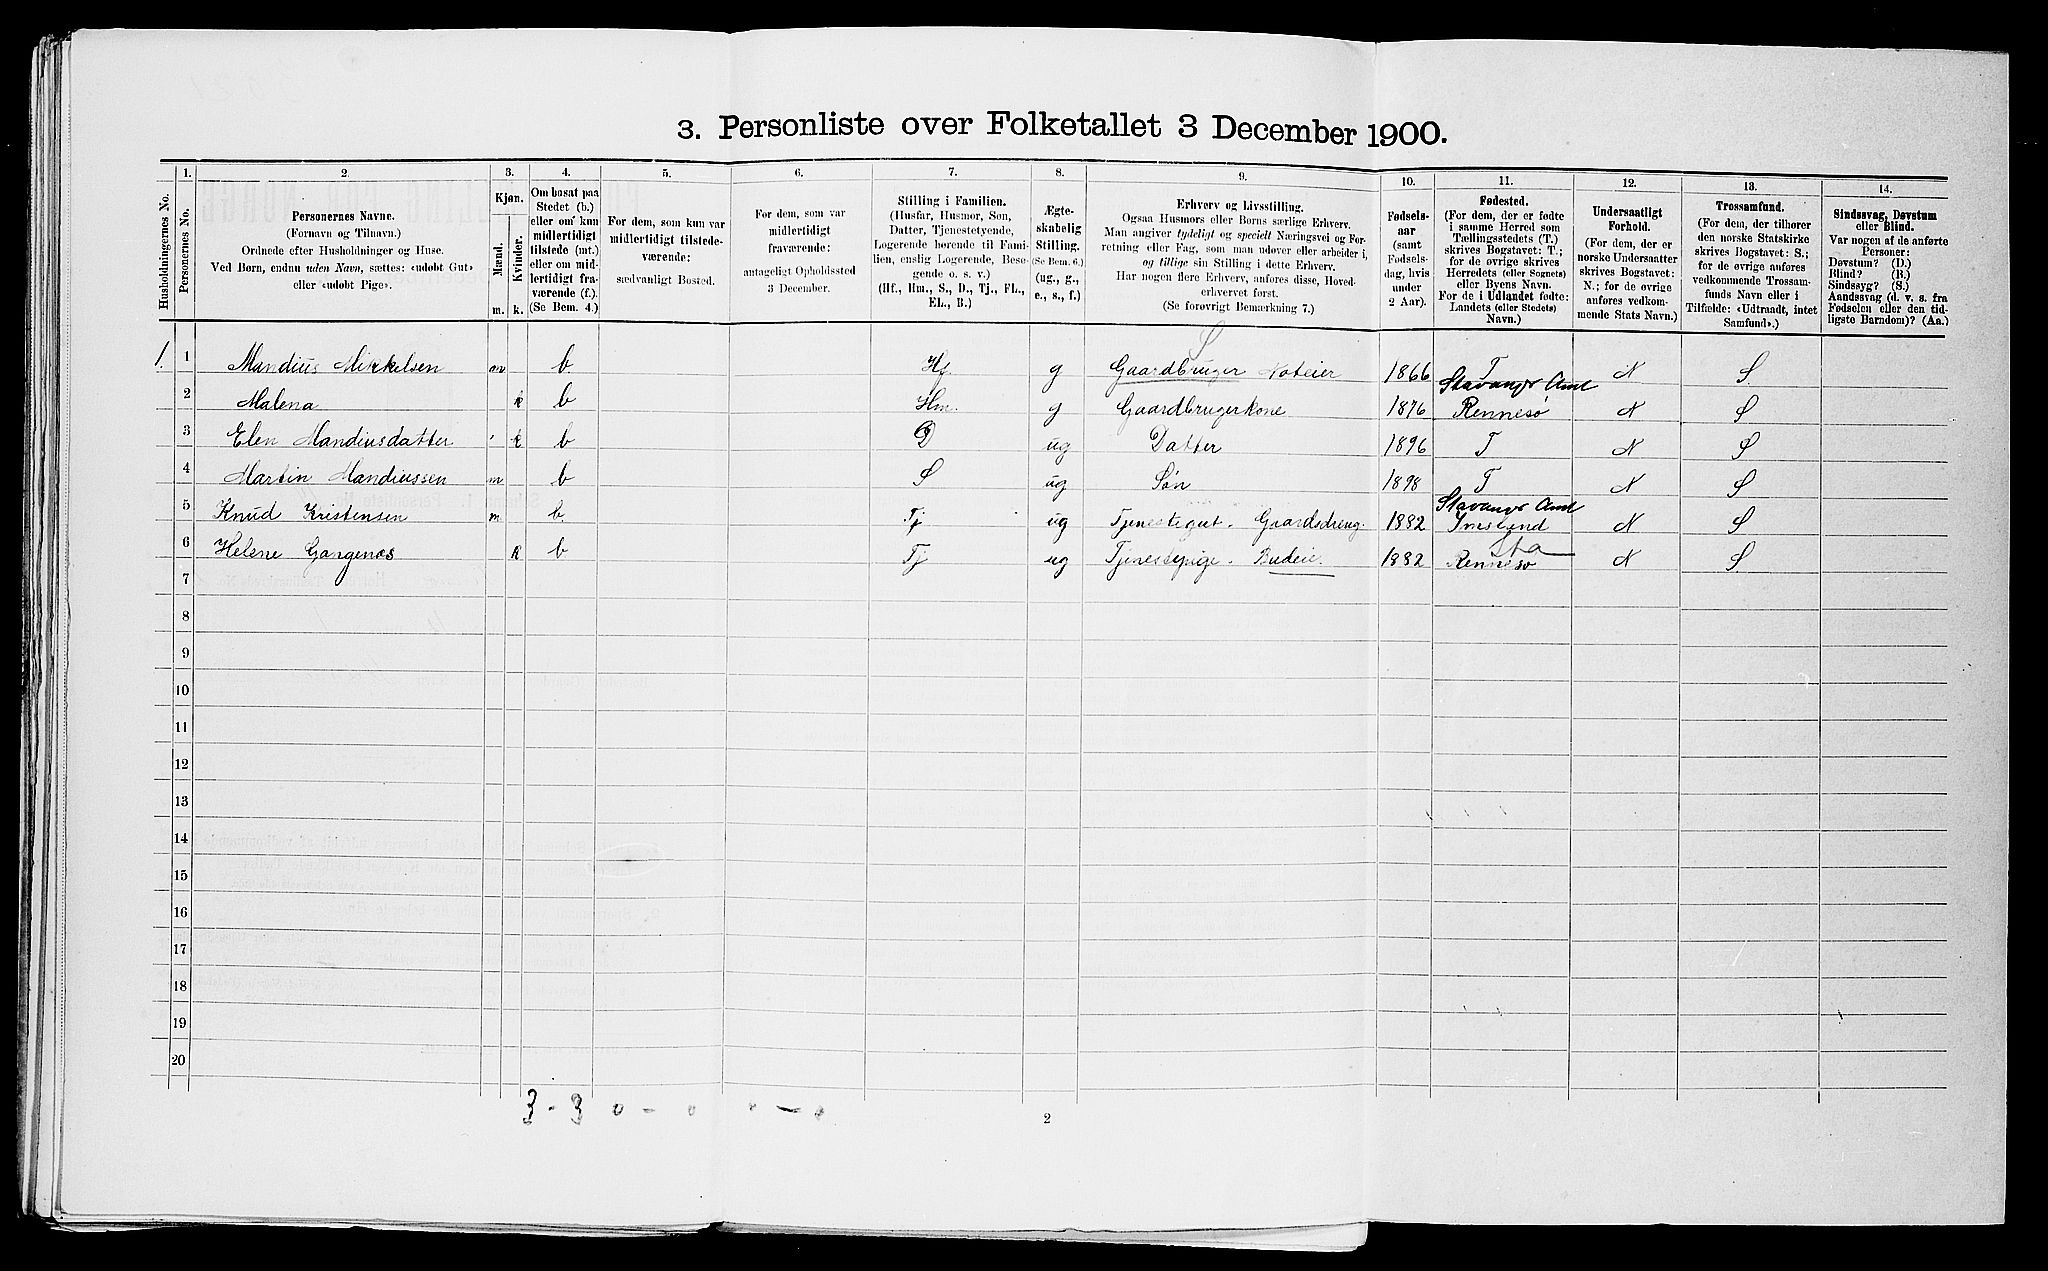 3. Personliste over Folketallet 3 December 1900.
Husholdningernes No.
1.
Personernes No.
2.
Personernes Navne.
(Fornavn og Tilnavn.)
Ordnede efter Husholdninger og Huse.
Ved Børn, endnu uden Navn, sættes: «udobt Gut»
eller «udobt Pige».
3.
Kjøn.
Mænd.
Kvinder.
m. k.
4.
Om bosat paa
Stedet (b.)
eller om kun
midlertidigt
tilstede (mt.)
eller om mid-
lertidigt fra-
værende (f.).
(Se Bem. 4.)
5.
For dem, som kun var
midlertidigt tilstede-
værende:
sædvanligt Bosted.
6.
For dem, som var
midlertidigt
fraværende:
antageligt Opholdssted
3 December.
7.
Stilling i Familien.
(Husfar, Husmor, Søn,
Datter, Tjenestetyende,
Logerende hørende til Fami-
lien, enslig Logerende, Besø-
gende o. s. v.)
(Hf., Hm., S., D., Tj., FL.,
EL., B.)
8.
Ægte-
skabelig
Stilling.
(Se Bem. 6.)
(ug., g.,
e., s., f.)
9.
Erhverv og Livsstilling.
Ogsaa Husmors eller Børns særlige Erhverv.
Man angiver tydeligt og specielt Næringsvei og For-
retning eller Fag, som man udøver eller arbeider i,
og tillige sin Stilling i dette Erhverv.
Har nogen flere Erhverv, anføres disse, Hoved-
erhvervet først.
(Se forøvrigt Bemærkning 7.)
10.
Fødsels-
aar
(samt
Fødsels-
dag, hvis
under
2 Aar).
11.
Fødested.
(For dem, der er fødte
i samme Herred som
Tællingsstedets (T.)
skrives Bogstavet: T.;
for de øvrige skrives
Herredets (eller Sognets)
eller Byens Navn.
For de i Udlandet fødte:
Landets (eller Stedets)
Navn.)
12.
Undersaatligt
Forhold.
(For dem, der er
norske Undersaatter
skrives Bogstavet:
N.; for de øvrige
anføres vedkom-
mende Stats Navn.)
13.
Trossamfund.
(For dem, der tilhører
den norske Statskirke
skrives Bogstavet: S.;
for de øvrige anføres
vedkommende Trossam-
funds Navn eller i
Tilfælde: «Udtraadt, intet
Samfund».)
14.
Sindssvag, Døvstum
eller Blind.
Var nogen af de anførte
Personer:
Døvstum? (D.)
Blind? (B.)
Sindssyg? (S.)
Aandssvag (d. v. s. fra
Fødselen eller den tid-
ligste Barndom)? (Aa.)
S
1. 1 Mandius Mikkelsen m b. Hf. g Gaardbruger Noteier 1866 T N S.
2 Malena k b Hm. g Gaardbrugerkone 1876 Stavanger Amt Rennesø N S
3 Elen Mandiusdatter k b D ug Datter 1896 T N S
4 Martin Mandiussen m b S ug Søn 1898 T N S
5 Knud Kristensen m b. Tj ug Tjenestegut. Gaardsdreng. 1882 Stavanger Amt N S
6 Helene Gangenæs k b Tj ug Tjenestepige. Budeie. 1882 Sta Rennesø N S.
7
8
9
10
11
12
13
14
15
16
17
18
19
20
3 - 3 0 - 0 0 - 0
2